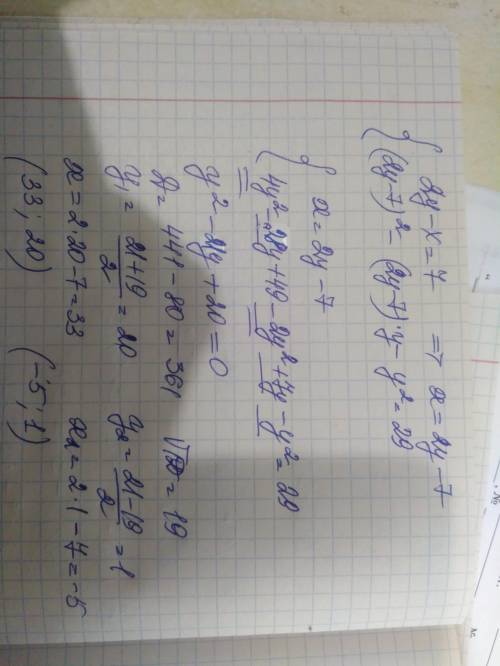 { 2y - x = 7 => x = 2y - 7
(2y-7)² - (2y-7)·y - y² = 29
{ x = 2y - 7
4y² - 28y + 49 - 2y² + 7y - y² = 29
y² - 21y + 20 = 0
D = 441 - 80 = 361 √D = 19
y₁ = (21+19)/2 = 20 y₂ = (21-19)/2 = 1
x = 2·20-7=33 x₂ = 2·1-7=-5
(33; 20) (-5; 1)